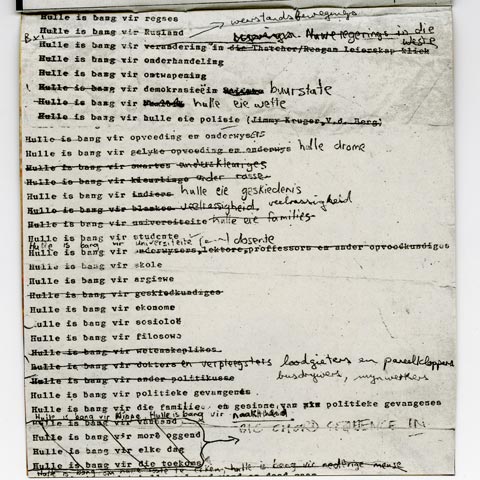 Hulle is bang vir regses
weerstandsbewegings
Hulle is bang vir Rusland
Nuwe regerings in die Weste
Hulle is bang vir verandering in die Thatcher/Reagan leierskap kliek
Hulle is bang vir onderhandeling
Hulle is bang vir ontwapening
Hulle is bang vir demokrasieë in buurstate
Hulle is bang vir hulle eie wette
Hulle is bang vir hulle eie polisie (Jimmy Kruger, V.d. Berg)
Hulle is bang vir opvoeding en onderwysers
Hulle is bang vir gelyke opvoeding en onderwys hulle drome
Hulle is bang vir swartes anderskleuriges
Hulle is bang vir kleurlinge ander rasse
Hulle is bang vir indiers hulle eie geskiedenis
Hulle is bang vir blankes veelrassigheid veelrassigheid
Hulle is bang vir universiteite hulle eie families
Hulle is bang vir studente
Hulle is bang vir universiteite dosente
Hulle is bang vir onderwysers, lektore, professors en ander opvoedkundiges
Hulle is bang vir skole
Hulle is bang vir argiewe
Hulle is bang vir geskiedkundiges
Hulle is bang vir ekonome
Hulle is bang vir sosioloë
Hulle is bang vir filosowe
Hulle is bang vir wetenskaplikes
Hulle is bang vir dokters en verpleegsters loodgieters en parelkloppers
Hulle is bang vir ander politikusse busdrywers, mynwerkers
Hulle is bang vir politieke gevangenes
Hulle is bang vir die families en gesinne van politieke gevangenes
Hulle is bang vir Hulle is bang vir naaktheid
Hulle is bang vir vandag
BIG CHORD SEQUENCE IN
Hulle is bang vir more oggend
Hulle is bang vir elke dag
Hulle is bang vir die toekoms
Hulle is bang om hulle hulle is bang vir nederige mense